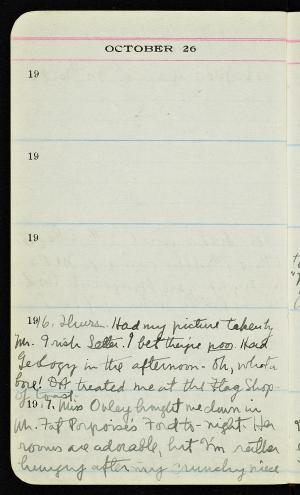 OCTOBER 26
19
19
19
1916. Thurs. Had my picture taken by
Mr. Irish Setter. I bet they're poo. Had
Geology in the afternoon - Oh, what a
bore! DA treated me at the Flag Shop -
of toast.
1917. Miss Ovley brought me down in
Mr. Fat Porpoise's Ford to-night. Her
rooms are adorable, but I'm rather
hungry after my crunchy piece